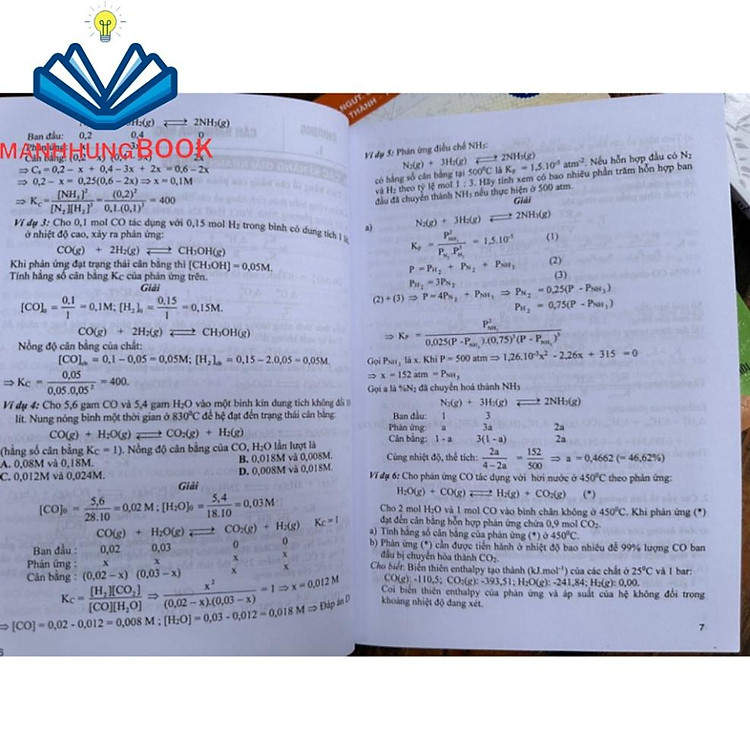 MANHHUNGBOOK
H₂(g) ⇌ 2NH₃(g)
Ban đầu: 0,2 0,4 0
Cân bằng: (0,2 - x) 2x
⇒ Cₛ = 0,2 – x + 0,4 – 3x + 2x = 0,6 – 2x
⇒ 0,2 – x = 0,25(0,6 – 2x) ⇒ x = 0,1M
⇒ K_C = [NH₃]² / [N₂][H₂]³ = (0,2)² / 0,1.(0,1)³ = 400
Ví dụ 3: Cho 0,1 mol CO tác dụng với 0,15 mol H₂ trong bình có dung tích 1 lít
ở nhiệt độ cao, xảy ra phản ứng:
CO(g) + 2H₂(g) ⇌ CH₃OH(g)
Khi phản ứng đạt trạng thái cân bằng thì [CH₃OH] = 0,05M.
Tính hằng số cân bằng K_C của phản ứng trên.
Giải
[CO]₀ = 0,1 / 1 = 0,1M; [H₂]₀ = 0,15 / 1 = 0,15M.
CO(g) + 2H₂(g) ⇌ CH₃OH(g)
Nồng độ cân bằng của chất:
[CO]cb = 0,1 – 0,05 = 0,05M; [H₂]cb = 0,15 – 2.0,05 = 0,05M.
⇒ K_C = 0,05 / 0,05.0,05² = 400.
Ví dụ 4: Cho 5,6 gam CO và 5,4 gam H₂O vào một bình kín dung tích không đổi 10
lít. Nung nóng bình một thời gian ở 830⁰C để hệ đạt đến trạng thái cân bằng:
CO(g) + H₂O(g) ⇌ CO₂(g) + H₂(g)
(hằng số cân bằng K_C = 1). Nồng độ cân bằng của CO, H₂O lần lượt là
A. 0,08M và 0,18M. B. 0,018M và 0,008M.
C. 0,012M và 0,024M. D. 0,008M và 0,018M.
Giải
[CO]₀ = 5,6 / 28.10 = 0,02 M ; [H₂O]₀ = 5,4 / 18.10 = 0,03 M
CO(g) + H₂O(g) ⇌ CO₂(g) + H₂(g) K_C = 1
Ban đầu : 0,02 0,03 0 0
Phản ứng : x x x x
Cân bằng : (0,02 – x) (0,03 – x) x x
K_C = [H₂][CO₂] / [CO][H₂O] ⇒ x² / (0,02 – x).(0,03 – x) = 1 ⇒ x = 0,012 M
⇒ [CO] = 0,02 - 0,012 = 0,008 M ; [H₂O] = 0,03 - 0,012 = 0,018 M ⇒ Đáp án D
Ví dụ 5: Phản ứng điều chế NH₃:
N₂(g) + 3H₂(g) ⇌ 2NH₃(g)
có hằng số cân bằng tại 500⁰C là K_P = 1,5.10⁻⁵ atm⁻². Nếu hỗn hợp đầu có N₂
và H₂ theo tỷ lệ mol 1 : 3. Hãy tính xem có bao nhiêu phần trăm hỗn hợp ban
đầu đã chuyển thành NH₃ nếu thực hiện ở 500 atm.
Giải
a) N₂(g) + 3H₂(g) ⇌ 2NH₃(g)
K_P = P²_NH₃ / P_N₂.P³_H₂ = 1,5.10⁻⁵ (1)
P = P_H₂ + P_N₂ + P_NH₃ (2)
P_H₂ = 3P_N₂ (3)
(2) + (3) ⇒ P = 4P_N₂ + P_NH₃ ⇒ P_N₂ = 0,25(P - P_NH₃)
P_H₂ = 0,75(P - P_NH₃)
⇒ K_P = P²_NH₃ / 0,025(P - P_NH₃).(0,75)³(P - P_NH₃)³
Gọi P_NH₃ là x. Khi P = 500 atm ⇒ 1,26.10⁻³x² - 2,26x + 315 = 0
⇒ x = 152 atm = P_NH₃
Gọi a là %N₂ đã chuyển hoá thành NH₃
N₂(g) + 3H₂(g) ⇌ 2NH₃(g)
Ban đầu: 1 3
Phản ứng: a 3a 2a
Cân bằng: 1 - a 3(1 - a) 2a
Cùng nhiệt độ, thể tích: 2a / 4 – 2a = 152 / 500 ⇒ a = 0,4662 (= 46,62%)
Ví dụ 6: Cho phản ứng CO tác dụng với hơi nước ở 450⁰C theo phản ứng:
H₂O(g) + CO(g) ⇌ H₂(g) + CO₂(g) (*)
Cho 2 mol H₂O và 1 mol CO vào bình chân không ở 450⁰C. Khi phản ứng (*)
đạt đến cân bằng hỗn hợp phản ứng chứa 0,9 mol CO₂.
a) Tính hằng số cân bằng của phản ứng (*) ở 450⁰C.
b) Phản ứng (*) cần được tiến hành ở nhiệt độ bao nhiêu để 99% lượng CO ban
đầu bị chuyển hóa thành CO₂.
Cho biết: Biến thiên enthalpy tạo thành (kJ.mol⁻¹) của các chất ở 25⁰C và 1 bar:
CO(g): -110,5; CO₂(g): -393,51; H₂O(g): -241,84; H₂(g): 0,00.
Coi biến thiên enthalpy của phản ứng và áp suất của hệ không đổi trong
khoảng nhiệt độ đang xét.
7